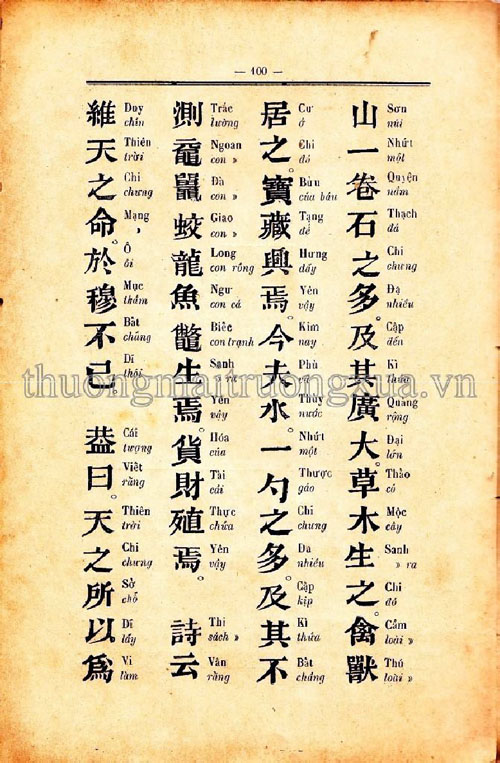 — 100 —
山一卷石之多。及其廣大。草木生之。禽獸
Sơn núi
Nhứt một
Quyện nắm
Thạch đá
Chi chưng
Đạ nhiều
Cập đến
Kì thửa
Quang rộng
Đại lớn
Thảo cỏ
Mộc cây
Sanh » ra
Chi đó
Cầm loài »
Thú loài »
居之。寶藏興焉。今夫水。一勺之多。及其不
Cư ở
Chi đó
Bửu của báu
Tạng để
Hưng dấy
Yên vậy
Kim nay
Phù
Thủy nước
Nhứt một
Thược gáo
Chi chưng
Đa nhiều
Cập kịp
Kì thửa
Bất chẳng
測黿鼉蛟龍魚鼈生焉。貨財殖焉。 詩云
Trắc lường
Ngoan con »
Đà con »
Giao con »
Long con rồng
Ngư con cá
Biêc con trạnh
Sanh » ra
Yên vậy
Hóa của
Tài cải
Thực chứa
Yên vậy
Thi sách »
Vân rằng
維天之命。於穆不已 葢曰。天之所以爲
Duy chỉn
Thiên trời
Chi chưng
Mạng »
Ô ôi
Mục thẳm
Bất chẳng
Dĩ thôi
Cái tượng
Việt rằng
Thiên trời
Chi chưng
Sở chỗ
Dĩ lấy
Vi làm
thuongmaitruongxua.vn